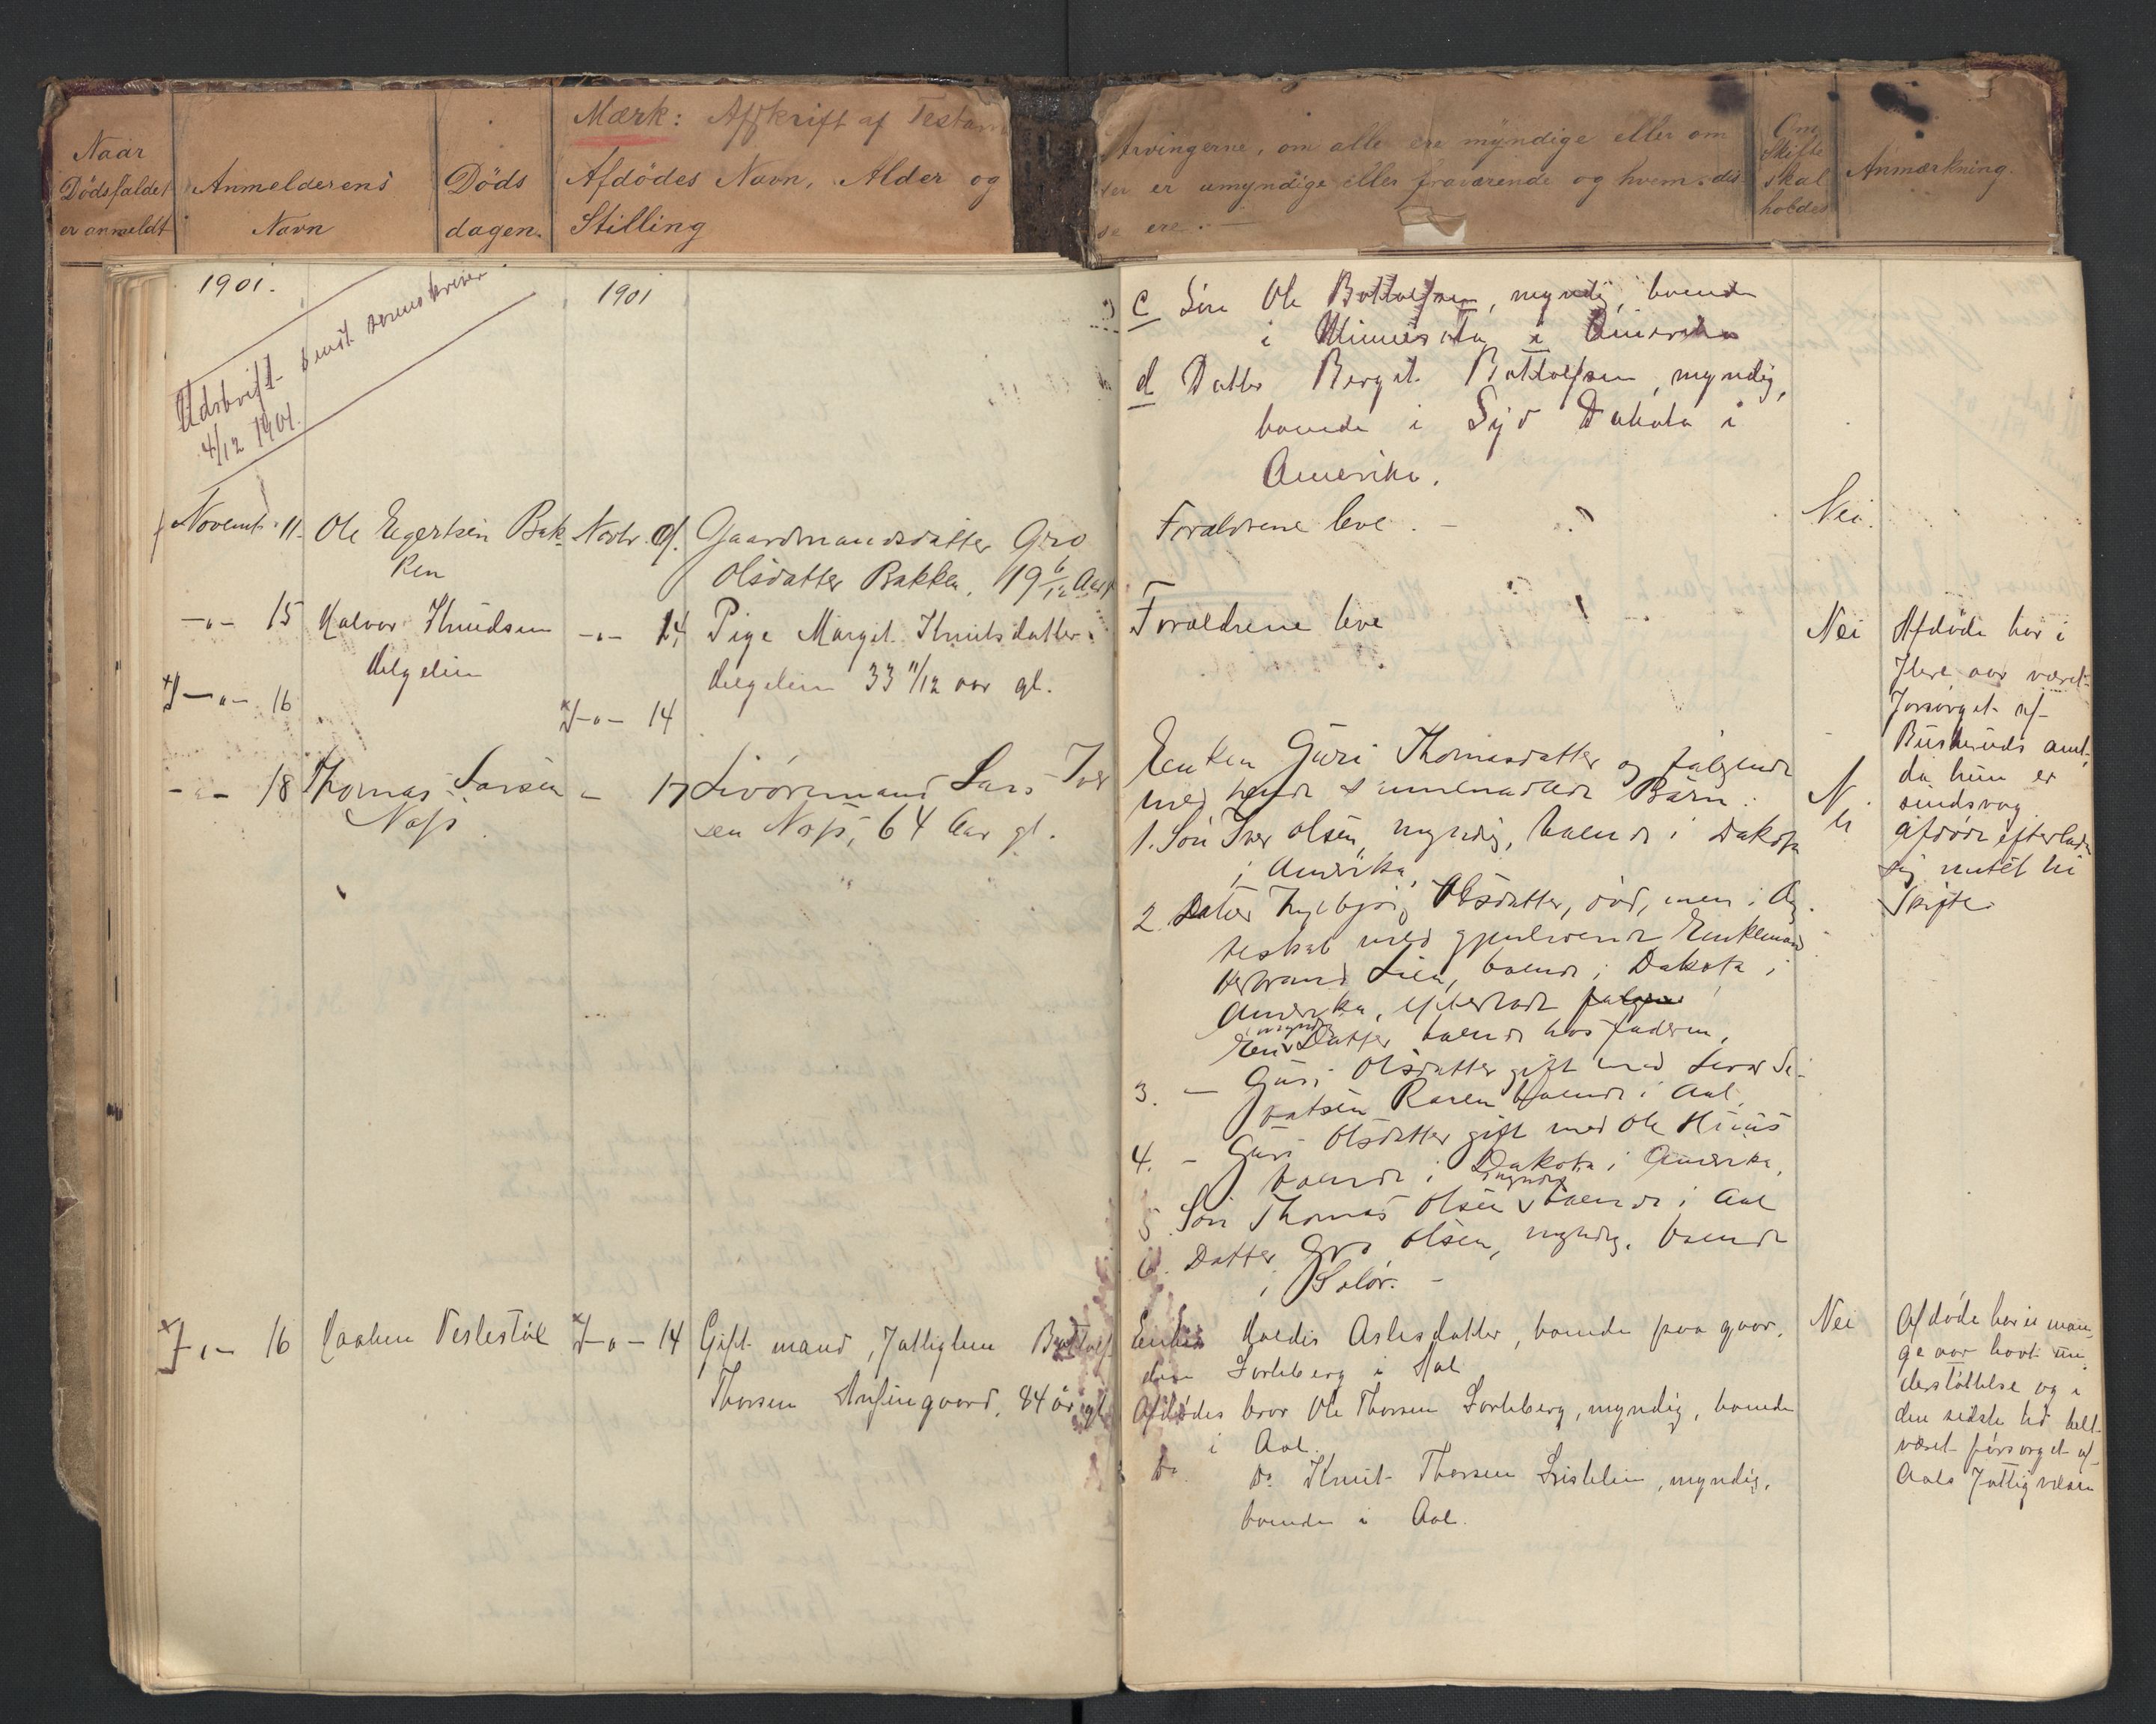 Naar
Dødsfaldet
er anmeldt
Anmelderens
Navn
Døds
dagen.
Mærk: Afskrift af Testam
Afdødes Navn, Alder og
Stilling
Arvingerne, om alle ere myndige eller om
der er umyndige eller fraværende og hvem dis-
se ere.
Om
Skifte
skal
holdes
Anmærkning.
1901.
Udskrift sendt sorenskriver
4/12 1901.
1901
c Søn Ole Bottolfsen, myndig, boende
i Minnesota i Amerika
d Datter Bergit Bottolfsen, myndig,
boende i Syd Dakota i
Amerika.
Novemb. 11.
Ole Egertsen Bak-
ken
Novbr. 9.
Gaardmandsdatter Gro
Olsdatter Bakken, 19 6/12 Aar
Forældrene leve. -
Nei.
-"- 15
Halvor Knudsen
Helgelien
-"- 14
Pige Margit Knutsdatter
Helgelien 33 11/12 aar gl.
Forældrene leve
Nei
Afdøde har i
flere aar været
forsørget af
Buskeruds amt,
da hun er
sindsvag
-"- 16
-"- 14
-"- 18
Thomas Larsen
Næss
- 17
Livøremand Lars Iver
sen Næss, 64 Aar gl.
Enken Guri Thomasdatter og følgende
med hende sammenavlede Børn:
1. Søn Iver Olsen, myndig, boende i Dakota
i Amerika,
2 Datter Ingebjør Olsdatter, død, men i Æg
teskab med gjenlevende Enkemand
Herbrand Lien, boende i Dakota i
Amerika, efterladt følgene
umyndig
En Datter boende hos faderen,
3. - Guri Olsdatter gift med Levor Si-
vatsen Raren boende i Aal,
4. - Guri Olsdatter gift med Ole Huus
boende i Dakota i Amerika,
myndig
5 Søn Thomas Olsen boende i Aal
6. Datter Gro Olsen, myndig, boende
i Solør. -
Nei
Afdøde efterlader
sig intet til
Skifte
-"- 16
Haaken Veslestøl
-"- 14
Gift mand, fattiglem Bottolf
Thorsen Anfingaard, 84 år gl
Enken Haldis Aslesdatter, boende paa gaar-
den Torleberg i Aal
Afdødes bror Ole Thorsen Torleberg, myndig, boende
i Aal.
Do Do Knut Thorsen Lislelien, myndig,
boende i Aal.
Nei
Afdøde har i man-
ge aar havt un-
derstøttelse og i
den sidste tid helt
været forsørget af
Aals fattigvæsen